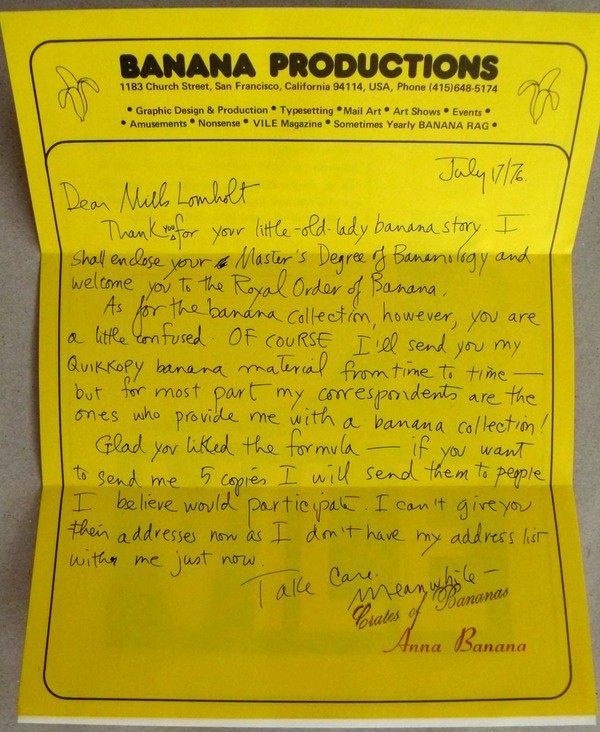 BANANA PRODUCTIONS
1183 Church Street, San Francisco, California 94114, USA, Phone (415)648-5174
• Graphic Design & Production • Typesetting • Mail Art • Art Shows • Events •
• Amusements • Nonsense • VILE Magazine • Sometimes Yearly BANANA RAG •
July 17/76.
Dear Niels Lomholt
Thank you for your little-old-lady banana story. I
shall enclose your Master's Degree of Bananology and
welcome you to the Royal Order of Banana.
As for the banana collection, however, you are
a little confused. OF COURSE I'll send you my
QUIKKOPY banana material from time to time —
but for most part my correspondents are the
ones who provide me with a banana collection!
Glad you liked the formula — if you want
to send me 5 copies I will send them to people
I believe would participate. I can't give you
their addresses now as I don't have my address list
with me just now.
Take Care. Meanwhile —
Crates of Bananas
Anna Banana